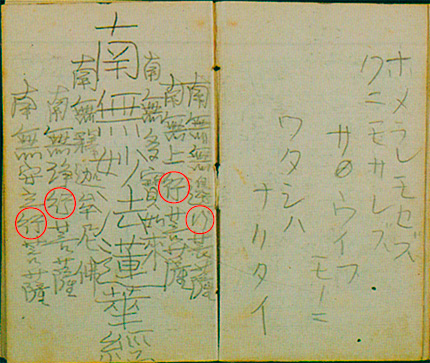 ホメラレモセズ
クニモサレズ
サウイフ
モノニ
ワタシハ
ナリタイ
南無無邊行菩薩
南無上行菩薩
南無多寶如来
南無妙法蓮華経
南無釋迦牟尼佛
南無浄行菩薩
南無安立行菩薩